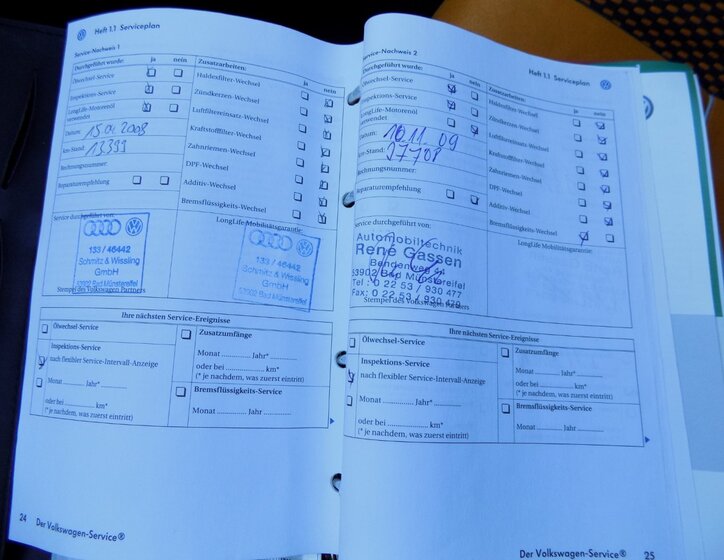 Heft 1.1 Serviceplan
Service-Nachweis 1
Durchgeführt wurde: ja nein
Ölwechsel-Service
Inspektions-Service
LongLife-Motorenöl
verwendet
Datum:
km-Stand: 13399
Rechnungsnummer:
Reparaturempfehlung
Zusatzarbeiten: ja nein
Haldexfilter-Wechsel
Zündkerzen-Wechsel
Luftfiltereinsatz-Wechsel
Kraftstofffilter-Wechsel
Zahnriemen-Wechsel
DPF-Wechsel
Additiv-Wechsel
Bremsflüssigkeits-Wechsel
Service durchgeführt von:
133 / 46442
Schmitz & Wissling
GmbH
53902 Bad Münstereifel
Stempel des Volkswagen Partners
LongLife Mobilitätsgarantie:
133 / 46442
Schmitz & Wissling
GmbH
53902 Bad Münstereifel
Ihre nächsten Service-Ereignisse
Ölwechsel-Service
Inspektions-Service
nach flexibler Service-Intervall-Anzeige
Monat ............ Jahr*............
oder bei ............ km*
(* je nachdem, was zuerst eintritt)
Zusatzumfänge
Monat ............ Jahr*............
oder bei ............ km*
(* je nachdem, was zuerst eintritt)
Bremsflüssigkeits-Service
Monat ............ Jahr ............
24 Der Volkswagen-Service®
Heft 1.1 Serviceplan
Service-Nachweis 2
Durchgeführt wurde: ja nein
Ölwechsel-Service
Inspektions-Service
LongLife-Motorenöl
verwendet
Datum: 10.11.09
km-Stand: 37708
Rechnungsnummer:
Reparaturempfehlung
Zusatzarbeiten: ja nein
Haldexfilter-Wechsel
Zündkerzen-Wechsel
Luftfiltereinsatz-Wechsel
Kraftstofffilter-Wechsel
Zahnriemen-Wechsel
DPF-Wechsel
Additiv-Wechsel
Bremsflüssigkeits-Wechsel
Service durchgeführt von:
Automobiltechnik
René Gassen
53902 Bad Münstereifel
Tel.: 0 22 53 / 930 477
Fax: 0 22 53 / 930 429
Stempel des Volkswagen Partners
LongLife Mobilitätsgarantie:
Ihre nächsten Service-Ereignisse
Ölwechsel-Service
Inspektions-Service
nach flexibler Service-Intervall-Anzeige
Monat ............ Jahr*............
oder bei ............ km*
(* je nachdem, was zuerst eintritt)
Zusatzumfänge
Monat ............ Jahr*............
oder bei ............ km*
(* je nachdem, was zuerst eintritt)
Bremsflüssigkeits-Service
Monat ............ Jahr ............
Der Volkswagen-Service® 25